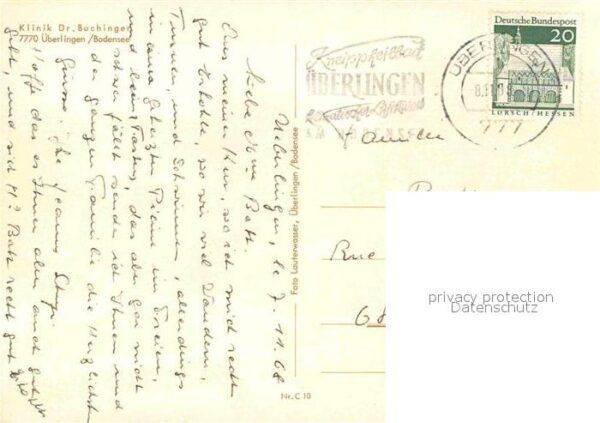 Klinik Dr. Buchinger
7770 Überlingen/Bodensee
Kneippheilbad
ÜBERLINGEN
AM BODENSEE
ÜBERLINGEN
777
Deutsche Bundespost
20
LORSCH/HESSEN
Überlingen, le 7.11.68
Liebe Mme Batz.
Aus meiner Kur, wo ich mich recht
gut erhohle, wo wir viel Wandern,
Turnen, und Schwimmen, allerdings
in einer geheizten Piscine im Freien,
und beim Fasten, das aber gar nicht
schwer fällt sende ich Ihnen und
der ganzen Familie die herzlichsten
Grüsse. Ihre Jeanne
Hoffe das es Ihnen allen auch gut
geht, und sich Mr Batz recht gut
Foto Lauterwasser, Überlingen/Bodensee
Nr. C 10
Familie
Rue
68
privacy protection
Datenschutz